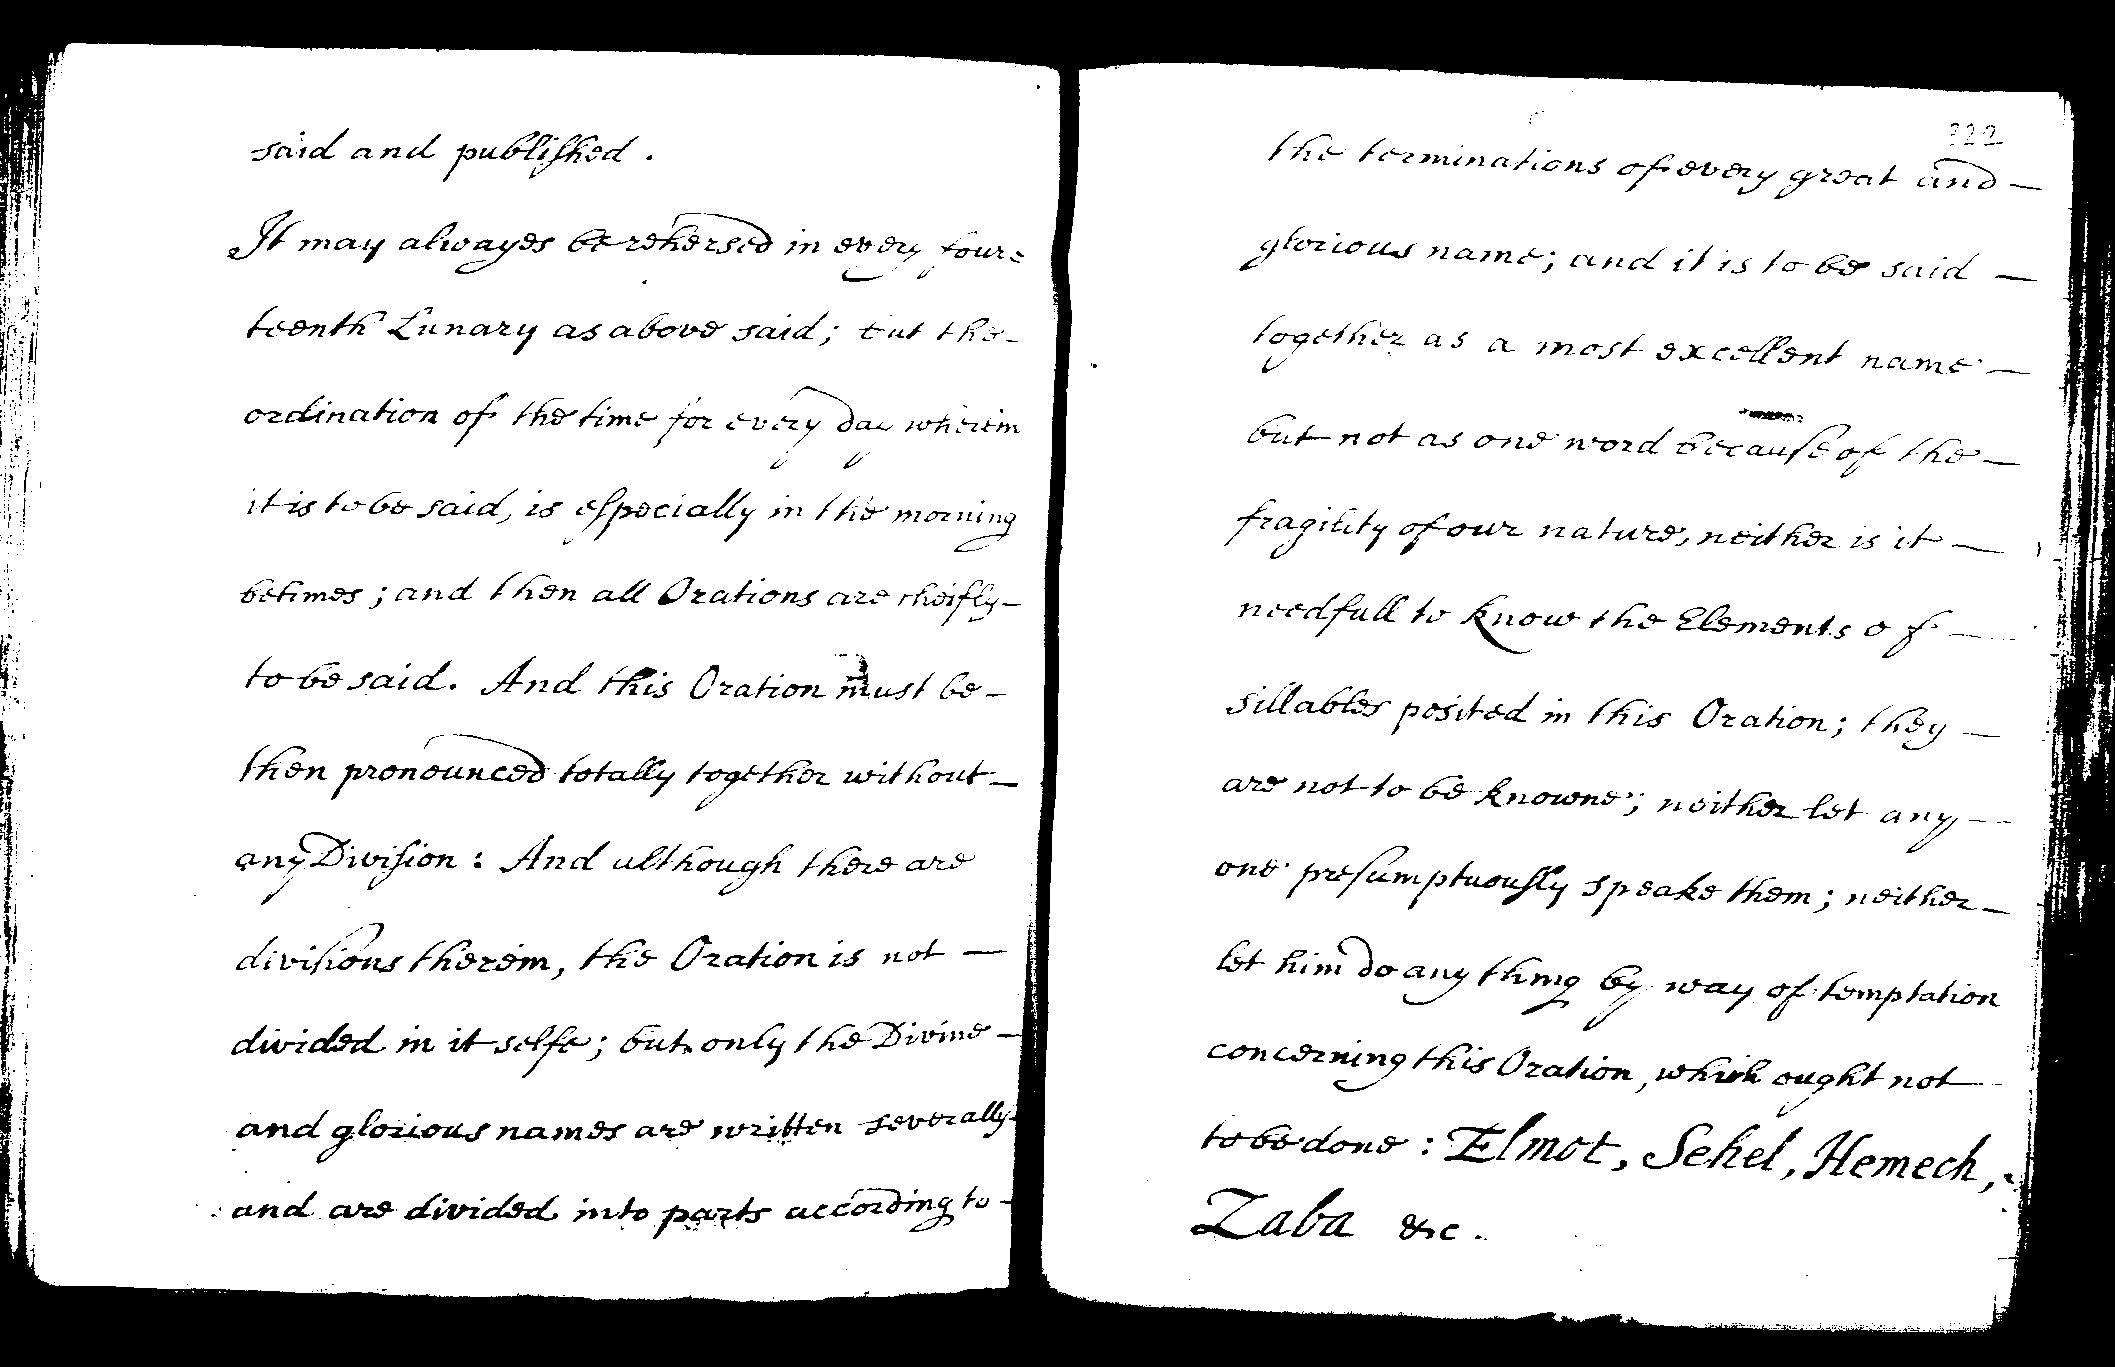 said and published.
It may alwayes be rehersed in every four=
teenth Lunary as above said; but the -
ordination of the time for every day wherein
it is to be said, is especially in the morning
betimes; and then all Orations are cheifly -
to be said. And this Oration must be -
then pronounced totally together without -
any Division: And although there are
divisions therein, the Oration is not -
divided in it selfe; but only the Divine -
and glorious names are written severally
and are divided into parts according to -
322
the terminations of every great and -
glorious name; and it is to be said -
together as a most excellent name -
but not as one word because of the -
fragility of our nature, neither is it -
needfull to know the Elements of -
sillables posited in this Oration; they -
are not to be knowne; neither let any -
one presumptuously speake them; neither -
let him do any thing by way of temptation
concerning this Oration, which ought not
to be done: Elmot, Sehel, Hemech,
Zaba &c.